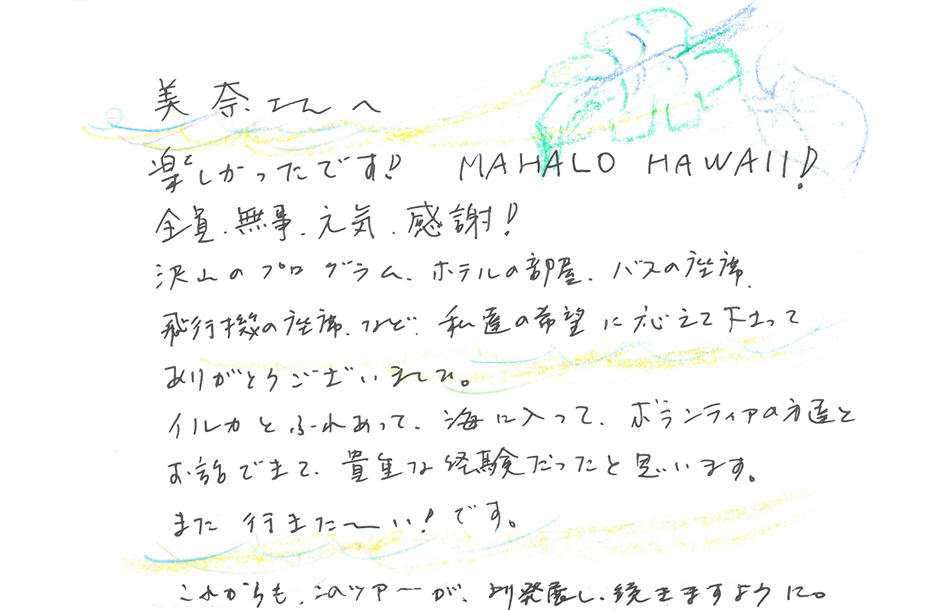 美奈さんへ
楽しかったです!! MAHALO HAWAII!
全員、無事、元気、感謝!!
沢山のプログラム、ホテルの部屋、バスの座席、
飛行機の座席、など、私達の希望に応えて下さって
ありがとうございました。
イルカとふれあって、海に入って、ボランティアの方達と
お話できて、貴重な経験だったと思います。
また行きた〜い!です。
これからも、このツアーが、より発展し、続きますように。